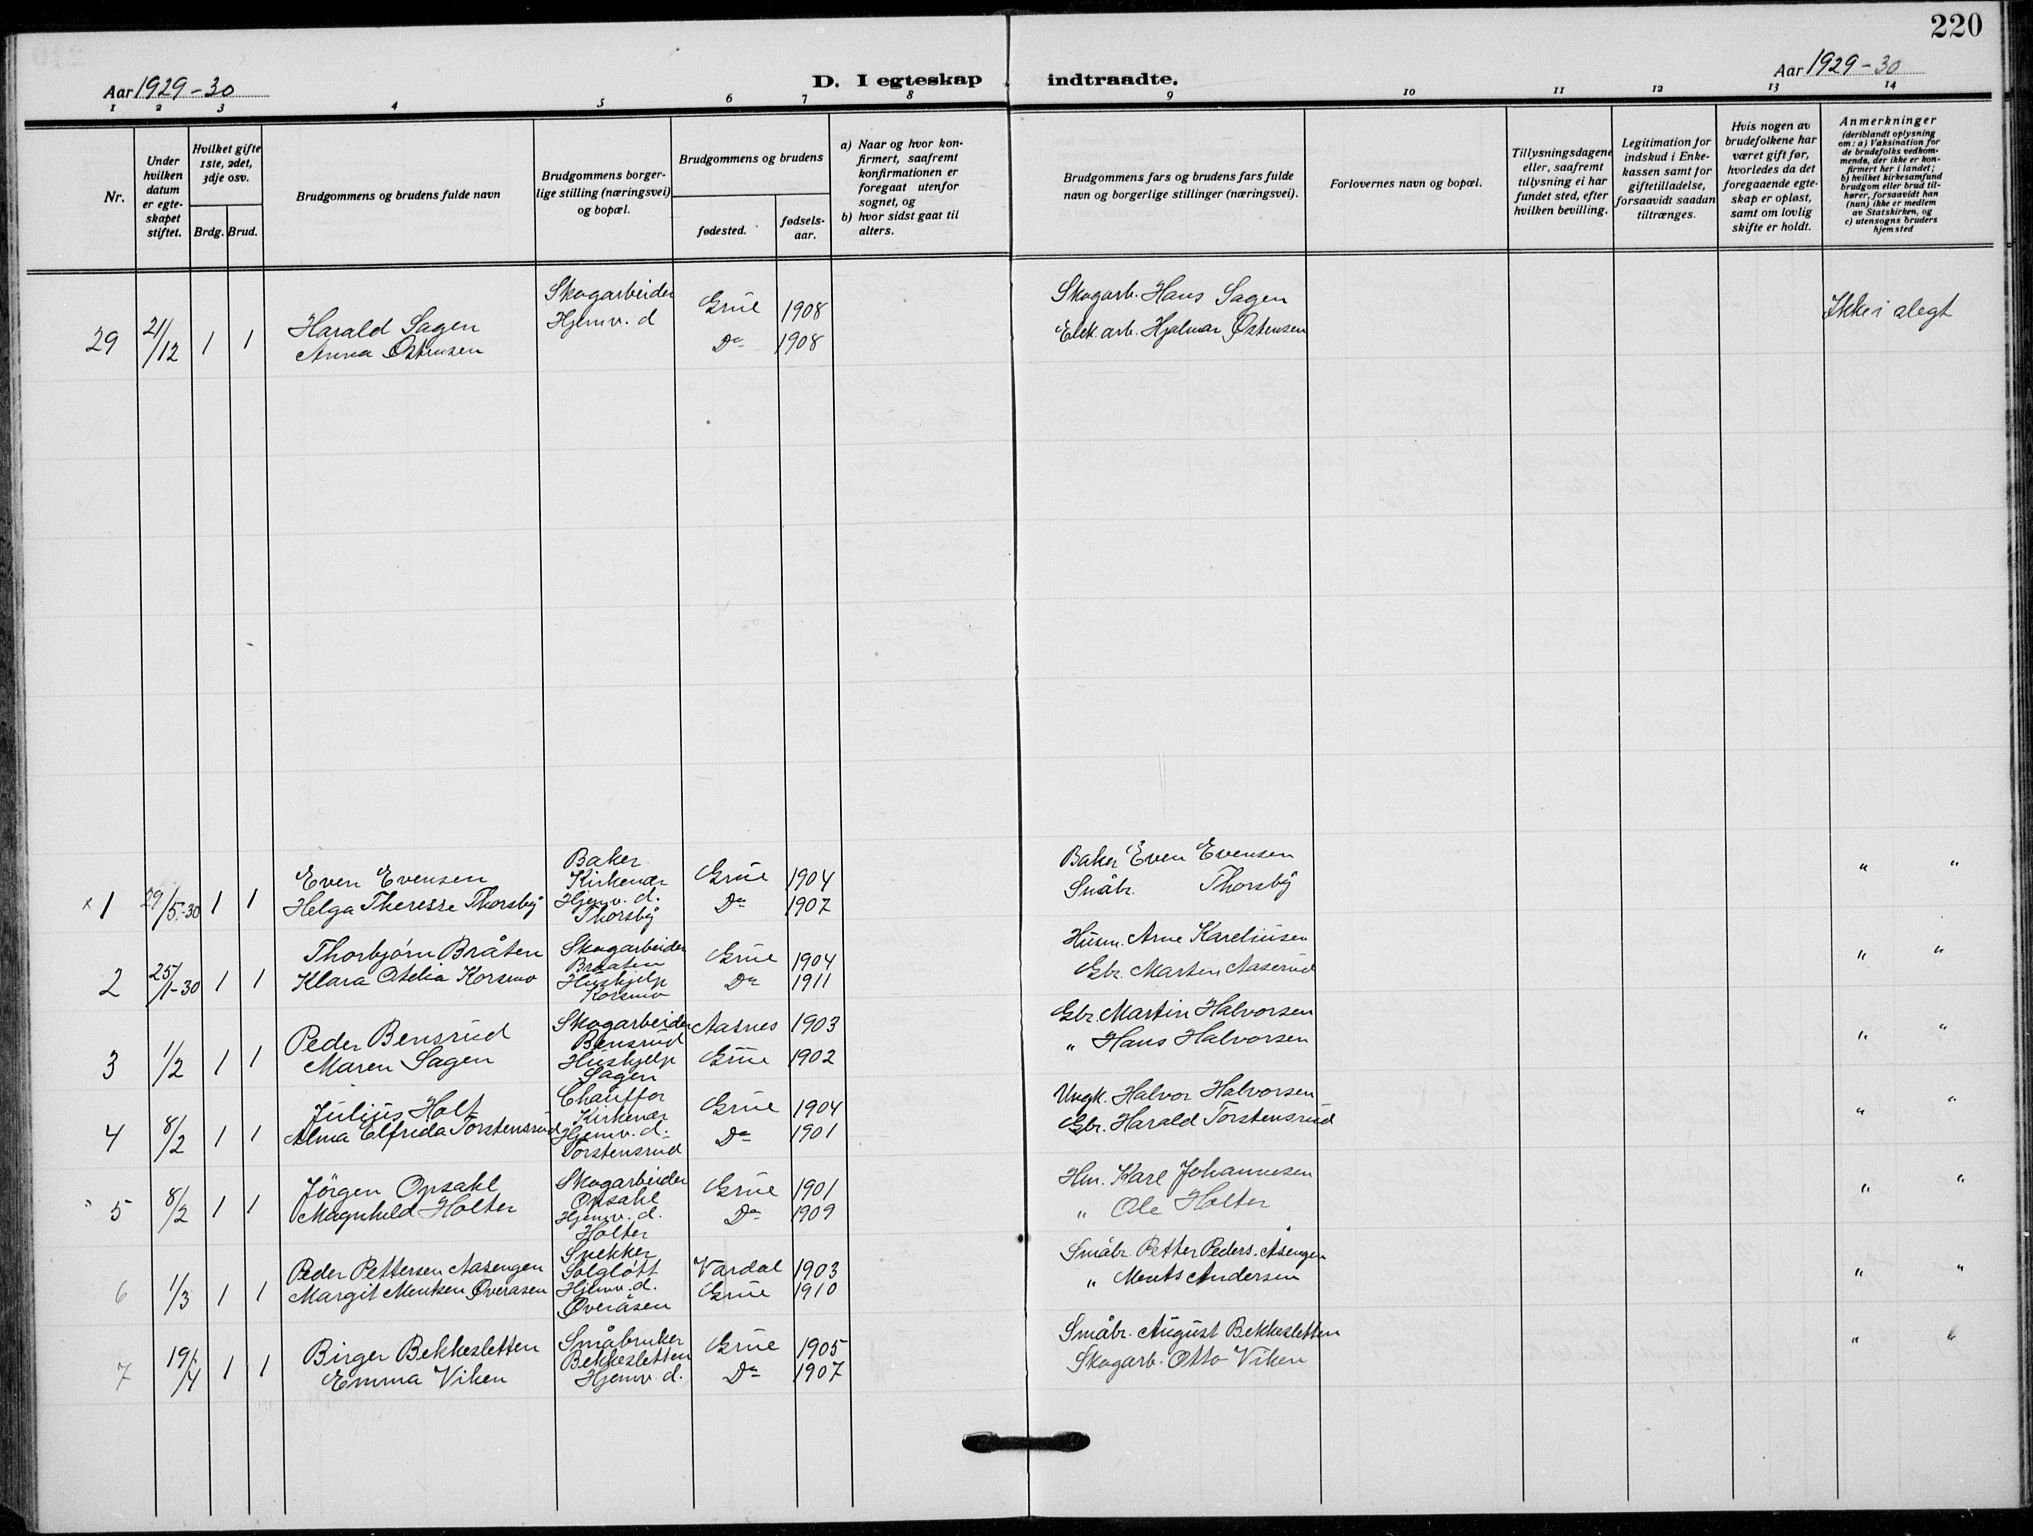 220
Aar 1929-30
D. I egteskap indtraadte.
Aar 1929-30
1 2 3 4 5 6 7 8 9 10 11 12 13 14
Nr.
Under hvilken datum er egteskapet stiftet.
Hvilket gifte 1ste, 2det, 3dje osv.
Brdg. Brud.
Brudgommens og brudens fulde navn
Brudgommens borgerlige stilling (næringsvei) og bopæl.
Brudgommens og brudens
fødested.
fødselsaar.
a) Naar og hvor konfirmert, saafremt konfirmationen er foregaat utenfor sognet, og
b) hvor sidst gaat til alters.
Brudgommens fars og brudens fars fulde navn og borgerlige stillinger (næringsvei).
Forlovernes navn og bopæl.
Tillysningsdagene eller, saafremt tillysning ei har fundet sted, efter hvilken bevilling.
Legitimation for indskud i Enkekassen samt for giftetilladelse, forsaavidt saadan tiltrænges.
Hvis nogen av brudefolkene har været gift før, hvorledes da det foregaaende egteskap er opløst, samt om lovlig skifte er holdt.
Anmerkninger
(deriblandt oplysning om: a) Vaksination for de brudefolks vedkommende, der ikke er konfirmert her i landet; b) hvilket kirkesamfund brudgom eller brud tilhører, forsaavidt han (hun) ikke er medlem av Statskirken, og c) utensogns bruders hjemsted
29 21/12 1 1 Harald Sagen Skogarbeider Grue 1908 Skogarb. Hans Sagen Ikke i slegt
Anna Østensen Hjemv. d Do 1908 Elek. arb. Hjalmar Østensen
x 1 29/5-30 1 1 Even Evensen Baker Kirkenær Grue 1904 Baker Even Evensen " "
Helga Therese Thorsby Hjemv. d. Thorsby Do 1907 Småbr. Thorsby
2 25/1-30 1 1 Thorbjørn Bråten Skogarbeider Braaten Grue 1904 Husm. Arne Kareliusen " "
Klara Otelia Korsmo Hushjelp Korsmo Do 1911 Gbr. Martin Aaserud
3 1/2 1 1 Peder Bensrud Skogarbeider Bensrud Aasnes 1903 Gbr. Martin Halvorsen " "
Maren Sagen Hushjelp Sagen Grue 1902 " Hans Halvorsen
4 8/2 1 1 Julius Holt Chauffør Kirkenær Grue 1904 Ungk. Halvor Halvorsen " "
Alma Elfrida Torstensrud Hjemv. d. Torstensrud Do 1901 Gbr. Harald Torstensrud
5 8/2 1 1 Jörgen Opsahl Skogarbeider Opsahl Grue 1901 Hm. Karl Johannesen " "
Magnhild Holter Hjemv. d. Holter Do 1909 " Ole Holter
6 1/3 1 1 Peder Pettersen Aasengen Snekker Solgløtt Vardal 1903 Småbr. Petter Peders. Åsengen " "
Margit Mentsen Øveraasen Hjemv. d. Øveråsen Grue 1910 " Ments Andersen
7 19/4 1 1 Birger Bekkesletten Småbruker Bekkesletten Grue 1905 Småbr. August Bekkesletten " "
Emma Viken Hjemv. d. Do 1907 Skogarb. Otto Viken